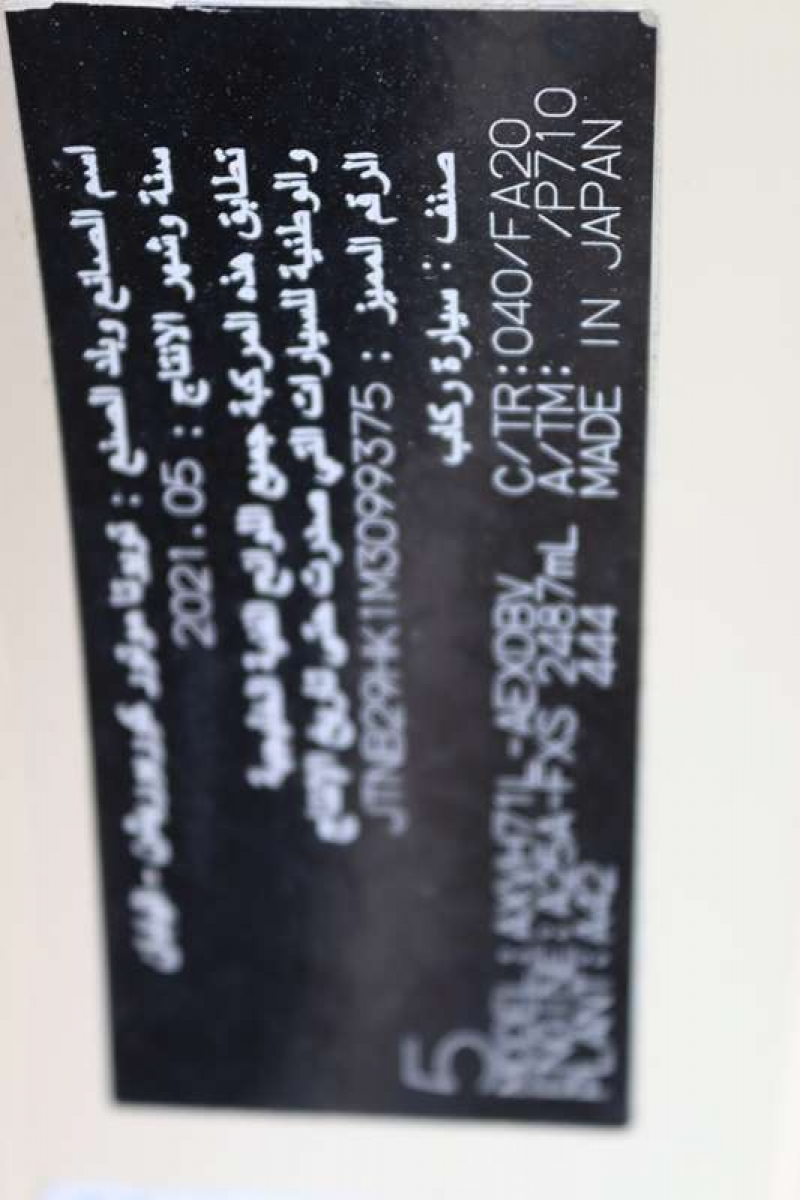 اسم الصانع وبلد الصنع : تويوتا موتور كوربوريشن - اليابان
سنة وشهر الانتاج : 2021.05
تطابق هذه المركبة جميع اللوائح الفنية الخليجية
والوطنية للسيارات التي صدرت حتى تاريخ الإنتاج
الرقم المميز : JTNB29HK1M3099375
صنف : سيارة ركاب
5
MODEL : AXVH71L-AEXDBV C/TR: 040/FA20
ENGINE : A25A-FXS 2487mL A/TM: /P710
PLANT : A42 444 MADE IN JAPAN